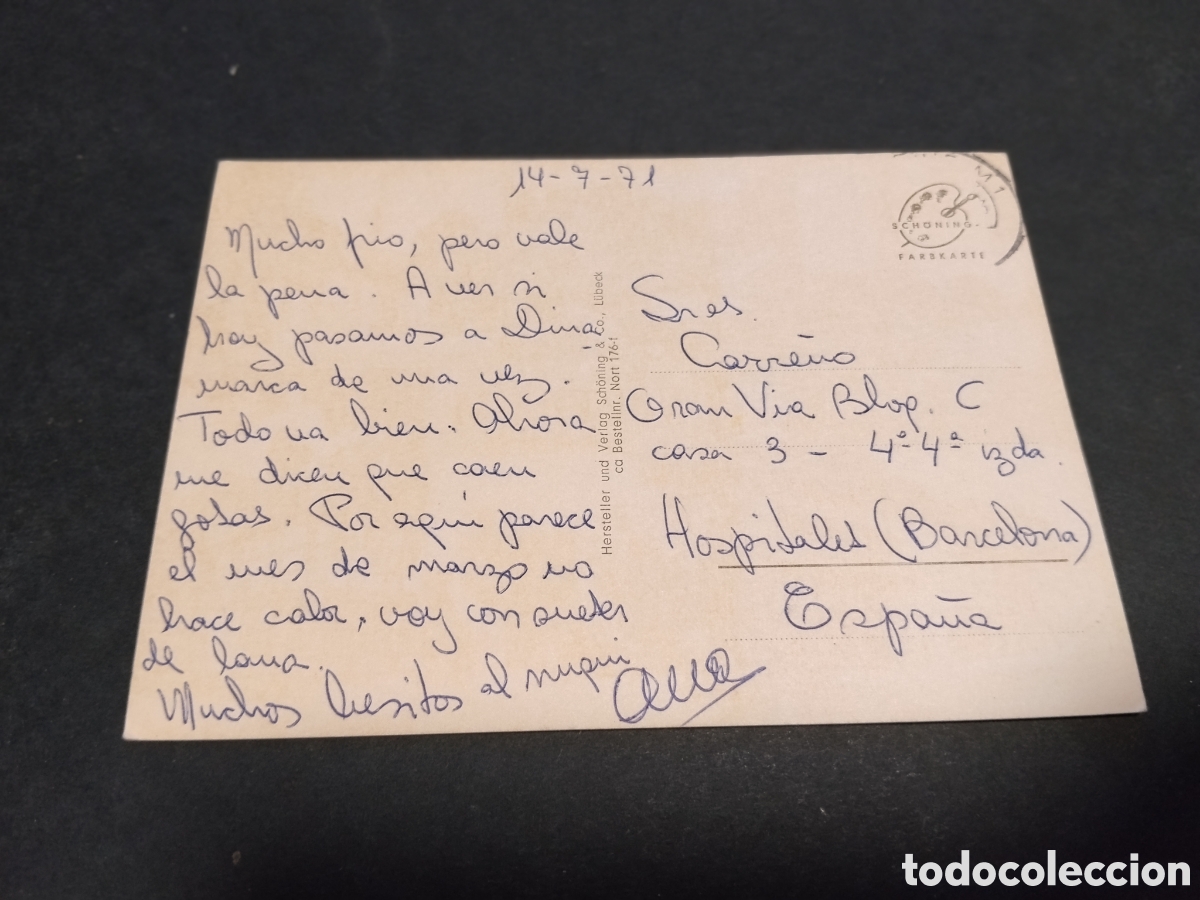 14-7-71
Mucho frio, pero vale
la pena. A ver si
hoy pasamos a Dina-
marca de una vez.
Todo va bien. Ahora
me dicen que caen
gotas. Por aqui parece
el mes de marzo no
hace calor, voy con sueter
de lana.
Muchos besitos al nuqui
Ana
Hersteller und Verlag Schöning & Co., Lübeck
ca Bestellnr. Nort 176-f
M 1
SCHÖNING
FARBKARTE
Sres.
Carreño
Gran Via Bloq. C
casa 3 - 4º-4ª izda.
Hospitalet (Barcelona)
España
todocoleccion